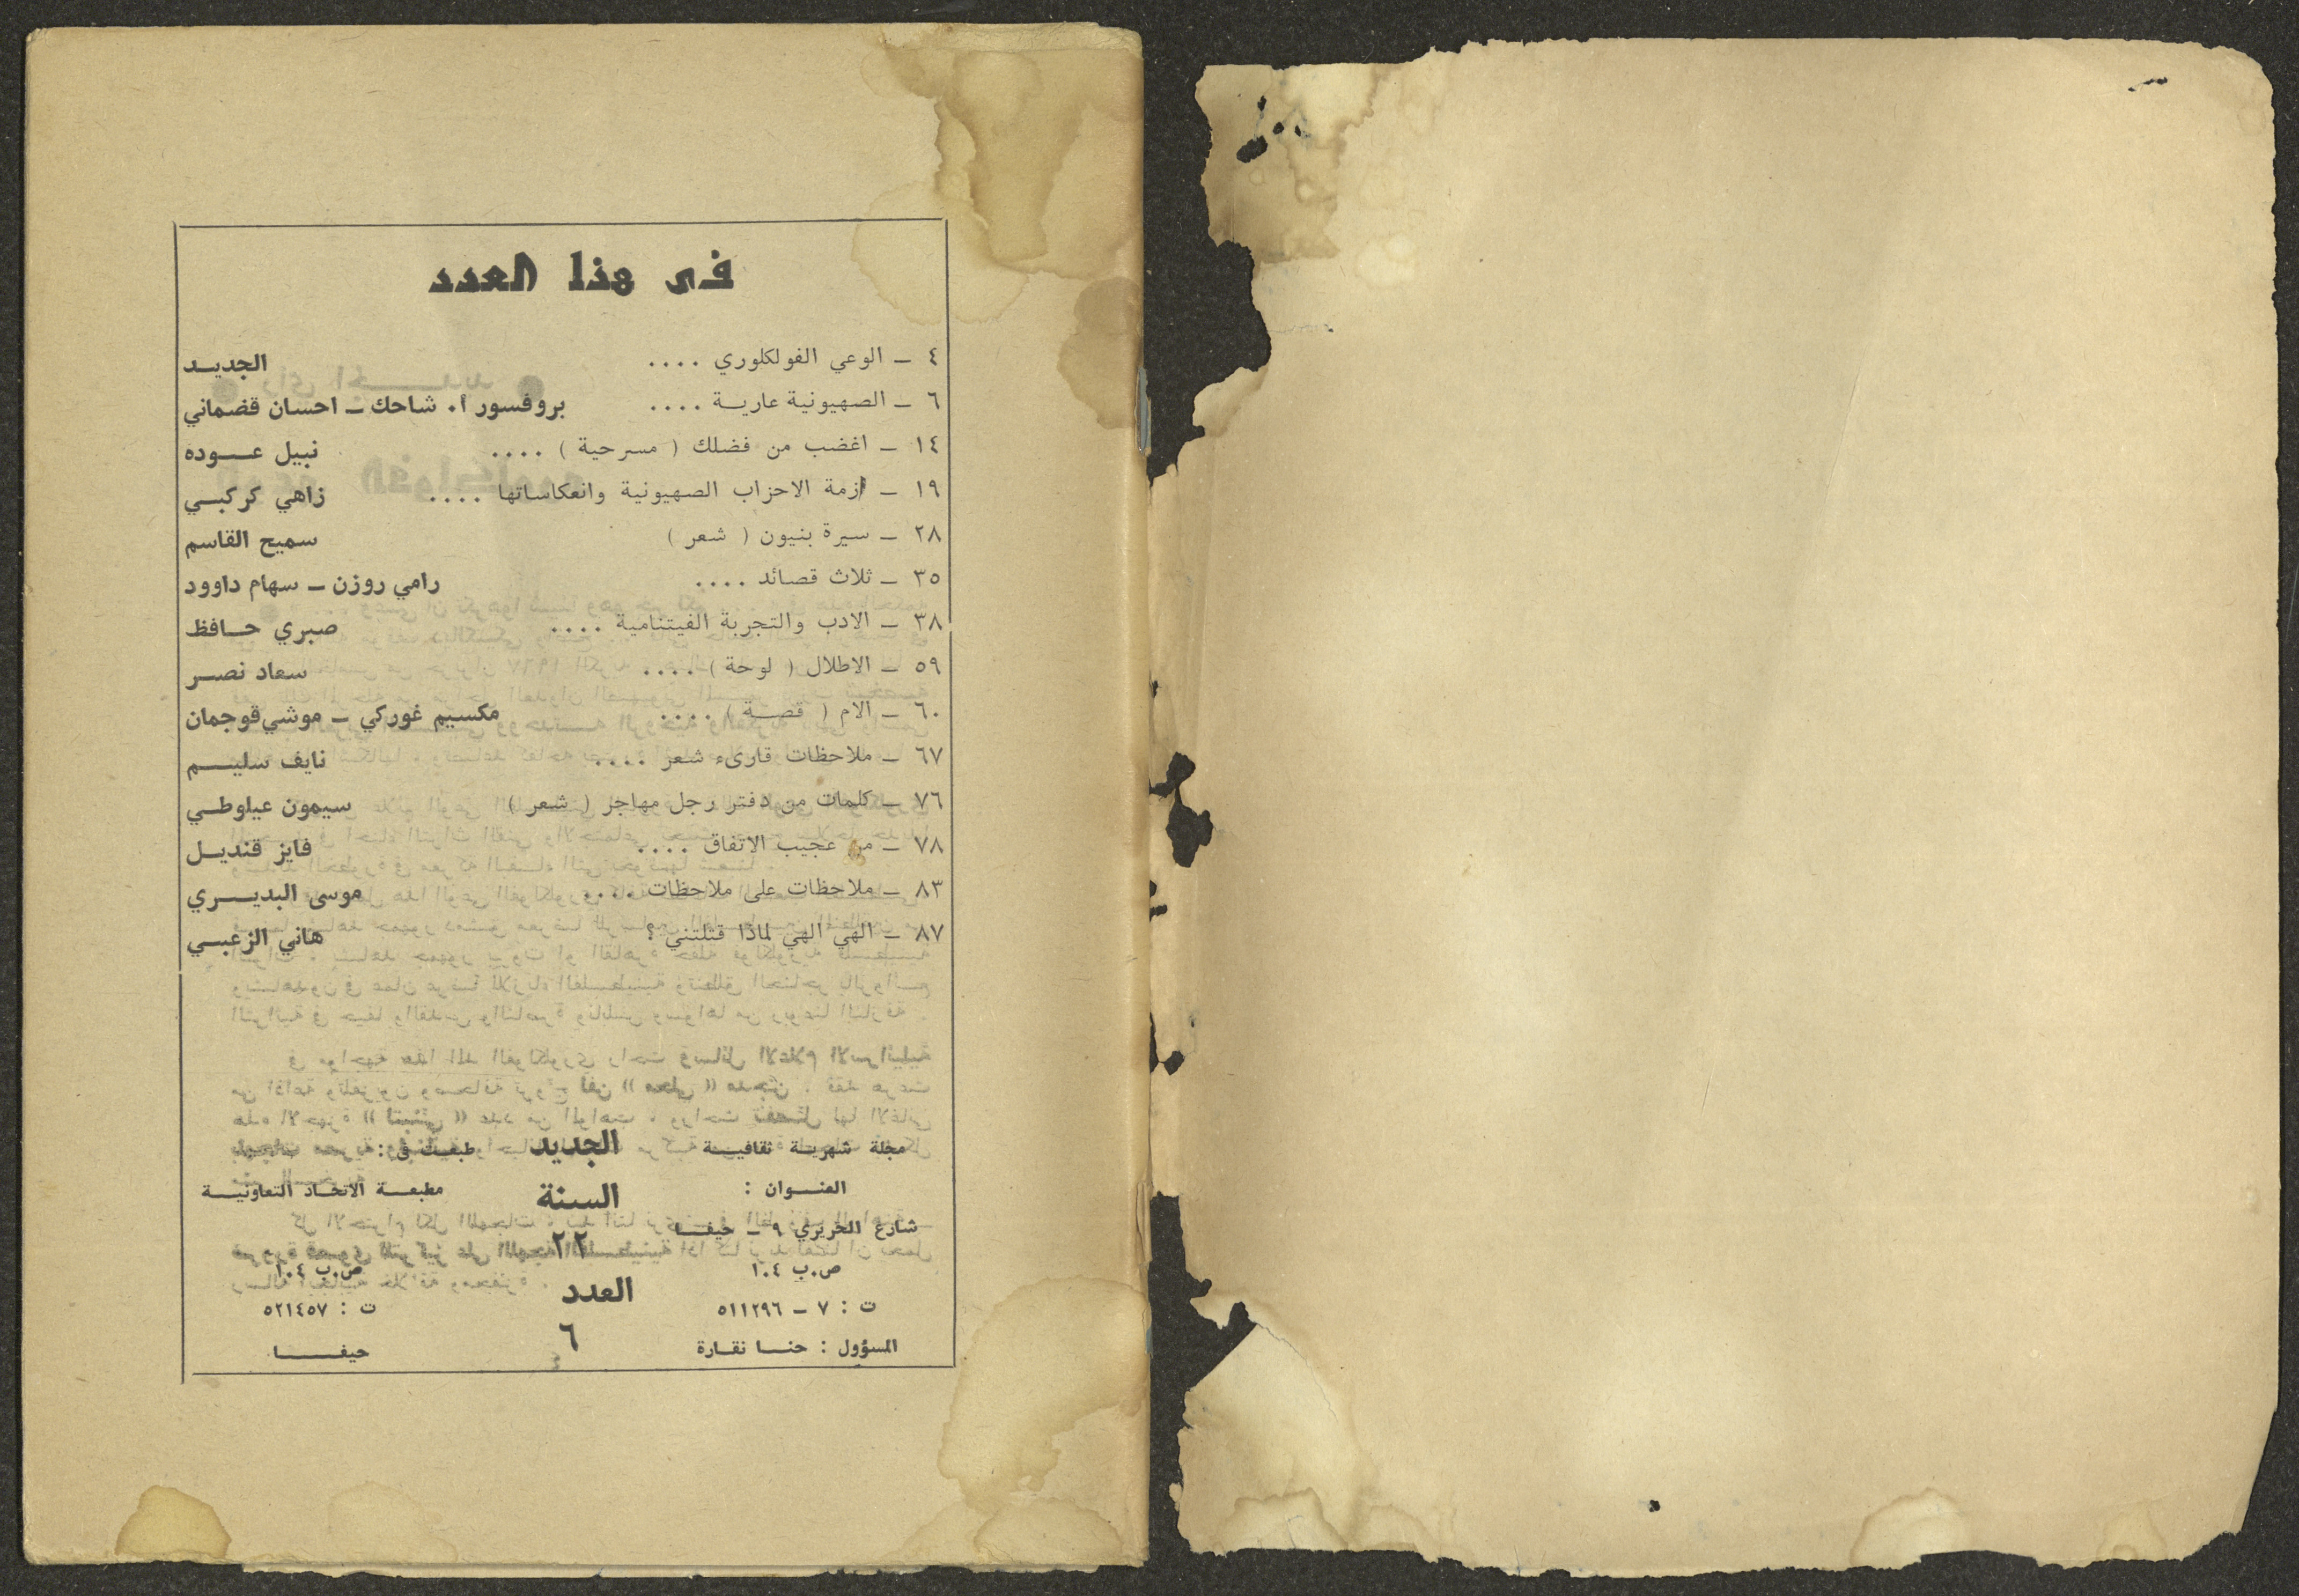 في هذا العدد
٤ ــ الوعي الفولكلوري .... الجديــد
٦ ــ الصهيونية عاريــة .... بروفسور أ. شاحك ــ احسان قضماني
١٤ ــ اغضب من فضلك ( مسرحية ) .... نبيل عــوده
١٩ ــ ازمة الاحزاب الصهيونية وانعكاساتها .... زاهي كركبــي
٢٨ ــ سيرة بنيون ( شعر ) سميح القاسم
٣٥ ــ ثلاث قصائد .... رامي روزن ــ سهام داوود
٣٨ ــ الادب والتجربة الفيتنامية .... صبري حــافظ
٥٩ ــ الاطلال ( لوحة ) .... سعاد نصــر
٦٠ ــ الام ( قصــة ) .... مكسيم غوركي ــ موشي قوجمان
٦٧ ــ ملاحظات قارىء شعر .... نايف سليــم
٧٦ ــ كلمات من دفتر رجل مهاجر ( شعر ) سيمون عيلوطــي
٧٨ ــ من عجيب الاتفاق .... فايز قنديــل
٨٣ ــ ملاحظات على ملاحظات .... موسى البديــري
٨٧ ــ الهي الهي لماذا قتلتني ؟ هاني الزعبــي
مجلة شهريــة ثقافيــة
العنــوان :
شارع الحريري ٩ ــ حيفــا
ص.ب ١٠٤
ت : ٧ ــ ٥١١٢٩٦
المسؤول : حنــا نقــارة
الجديد
السنة
٢٢
العدد
٦
طبعــت في :
مطبعــة الاتحــاد التعاونيــة
ص.ب ١٠٤
ت : ٥٢١٤٥٧
حيفــــا